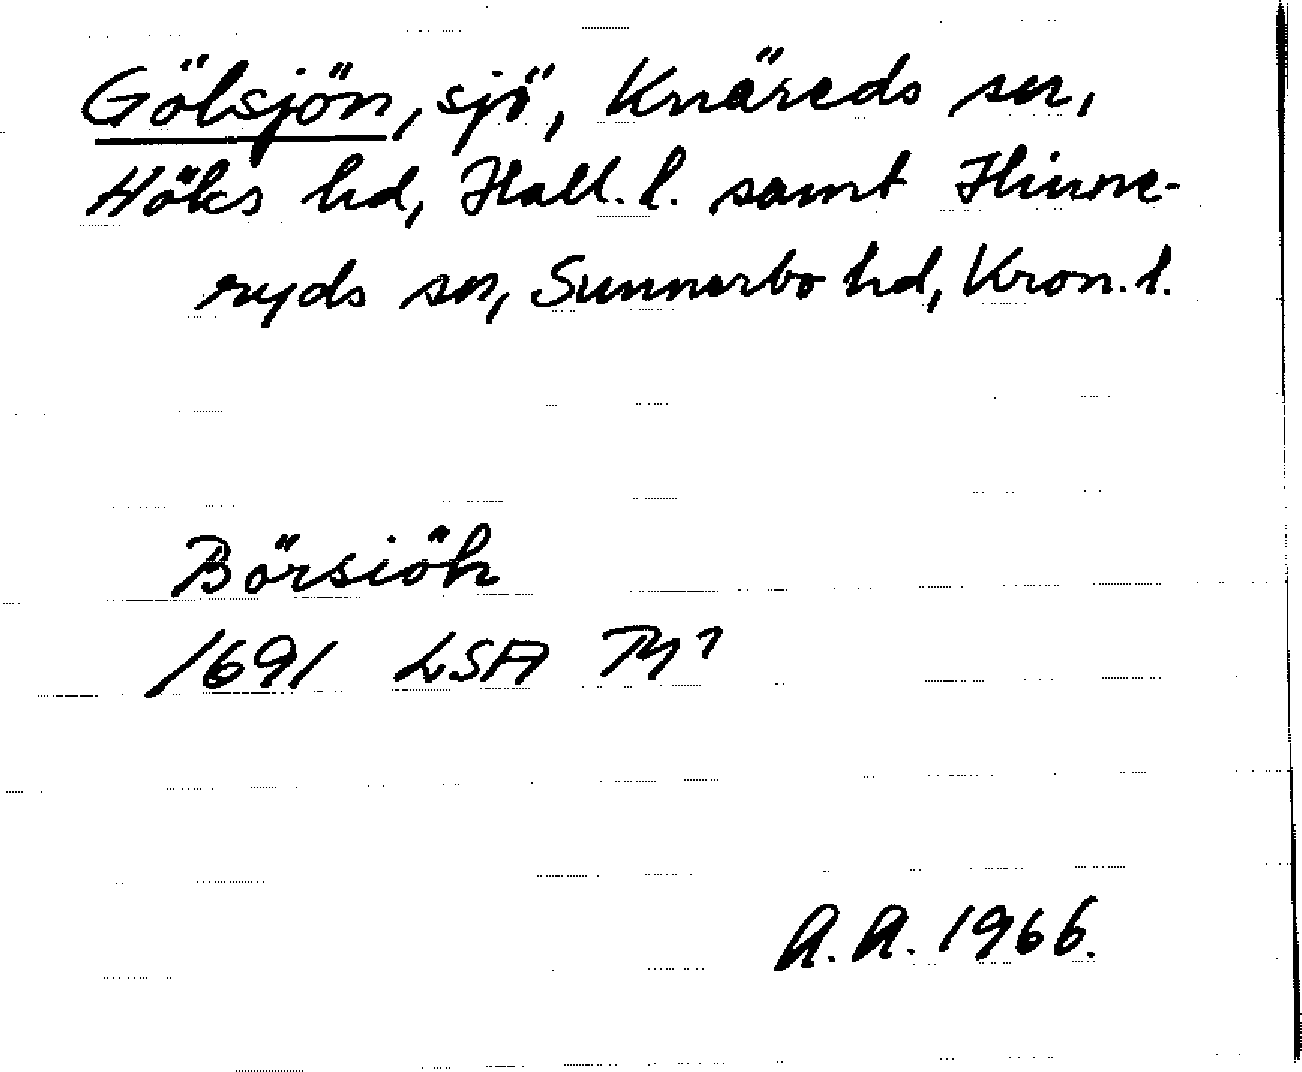 Gölsjön, sjö, Knäreds sn,
Höks hd, Hall. l. samt Hinne-
ryds sn, Sunnerbo hd, Kron. l.
Börsiöh
1691 LSA
A.A. 1966.